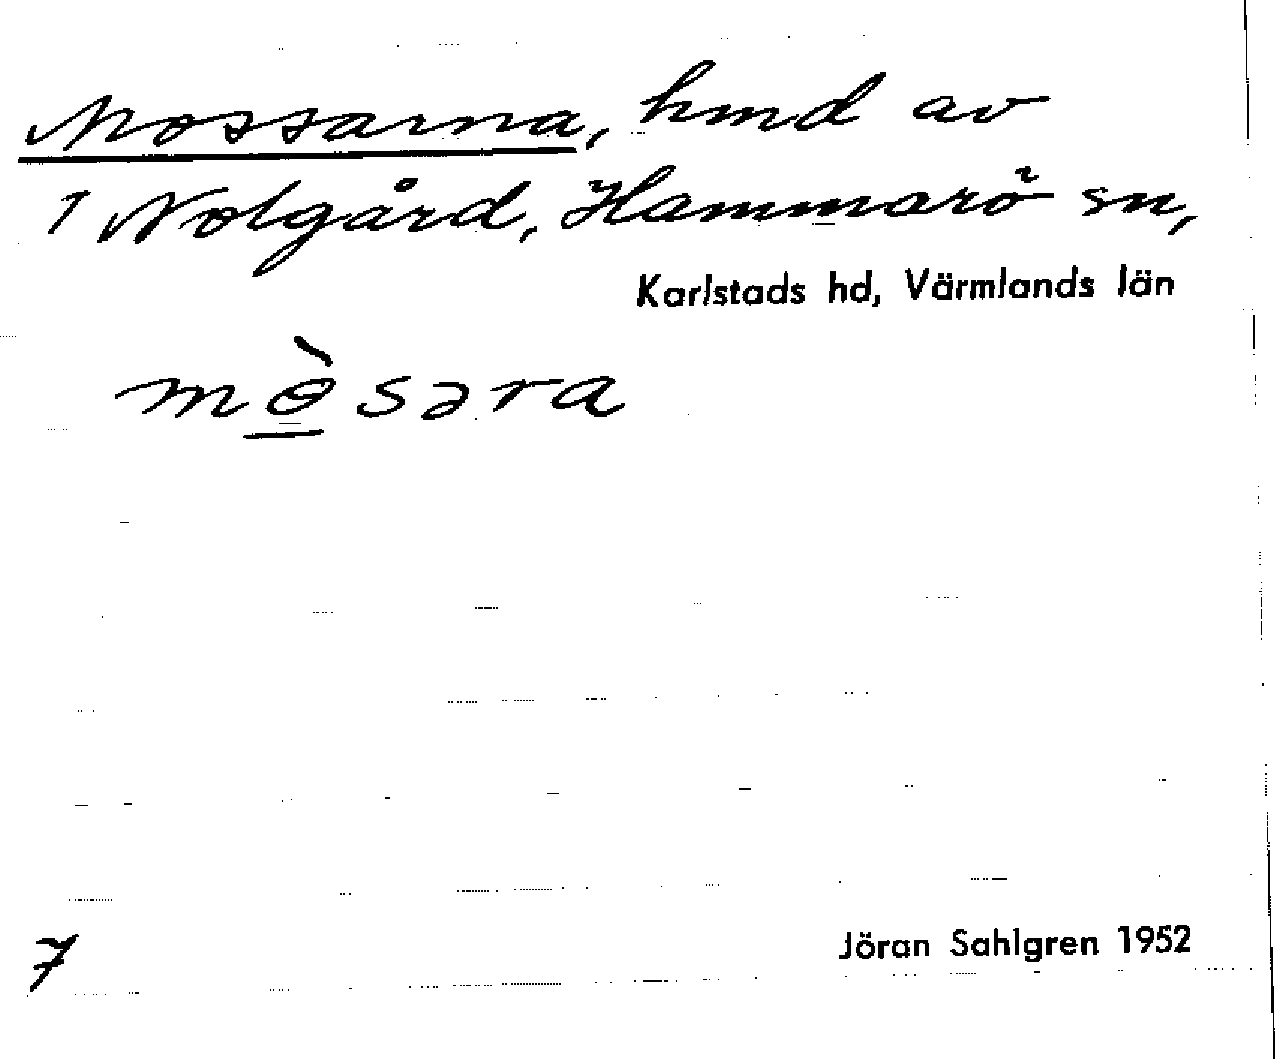 Mossarna, hmd av
1 Nolgård, Hammarö sn,
Karlstads hd, Värmlands län
mɵ̀səra
7
Jöran Sahlgren 1952